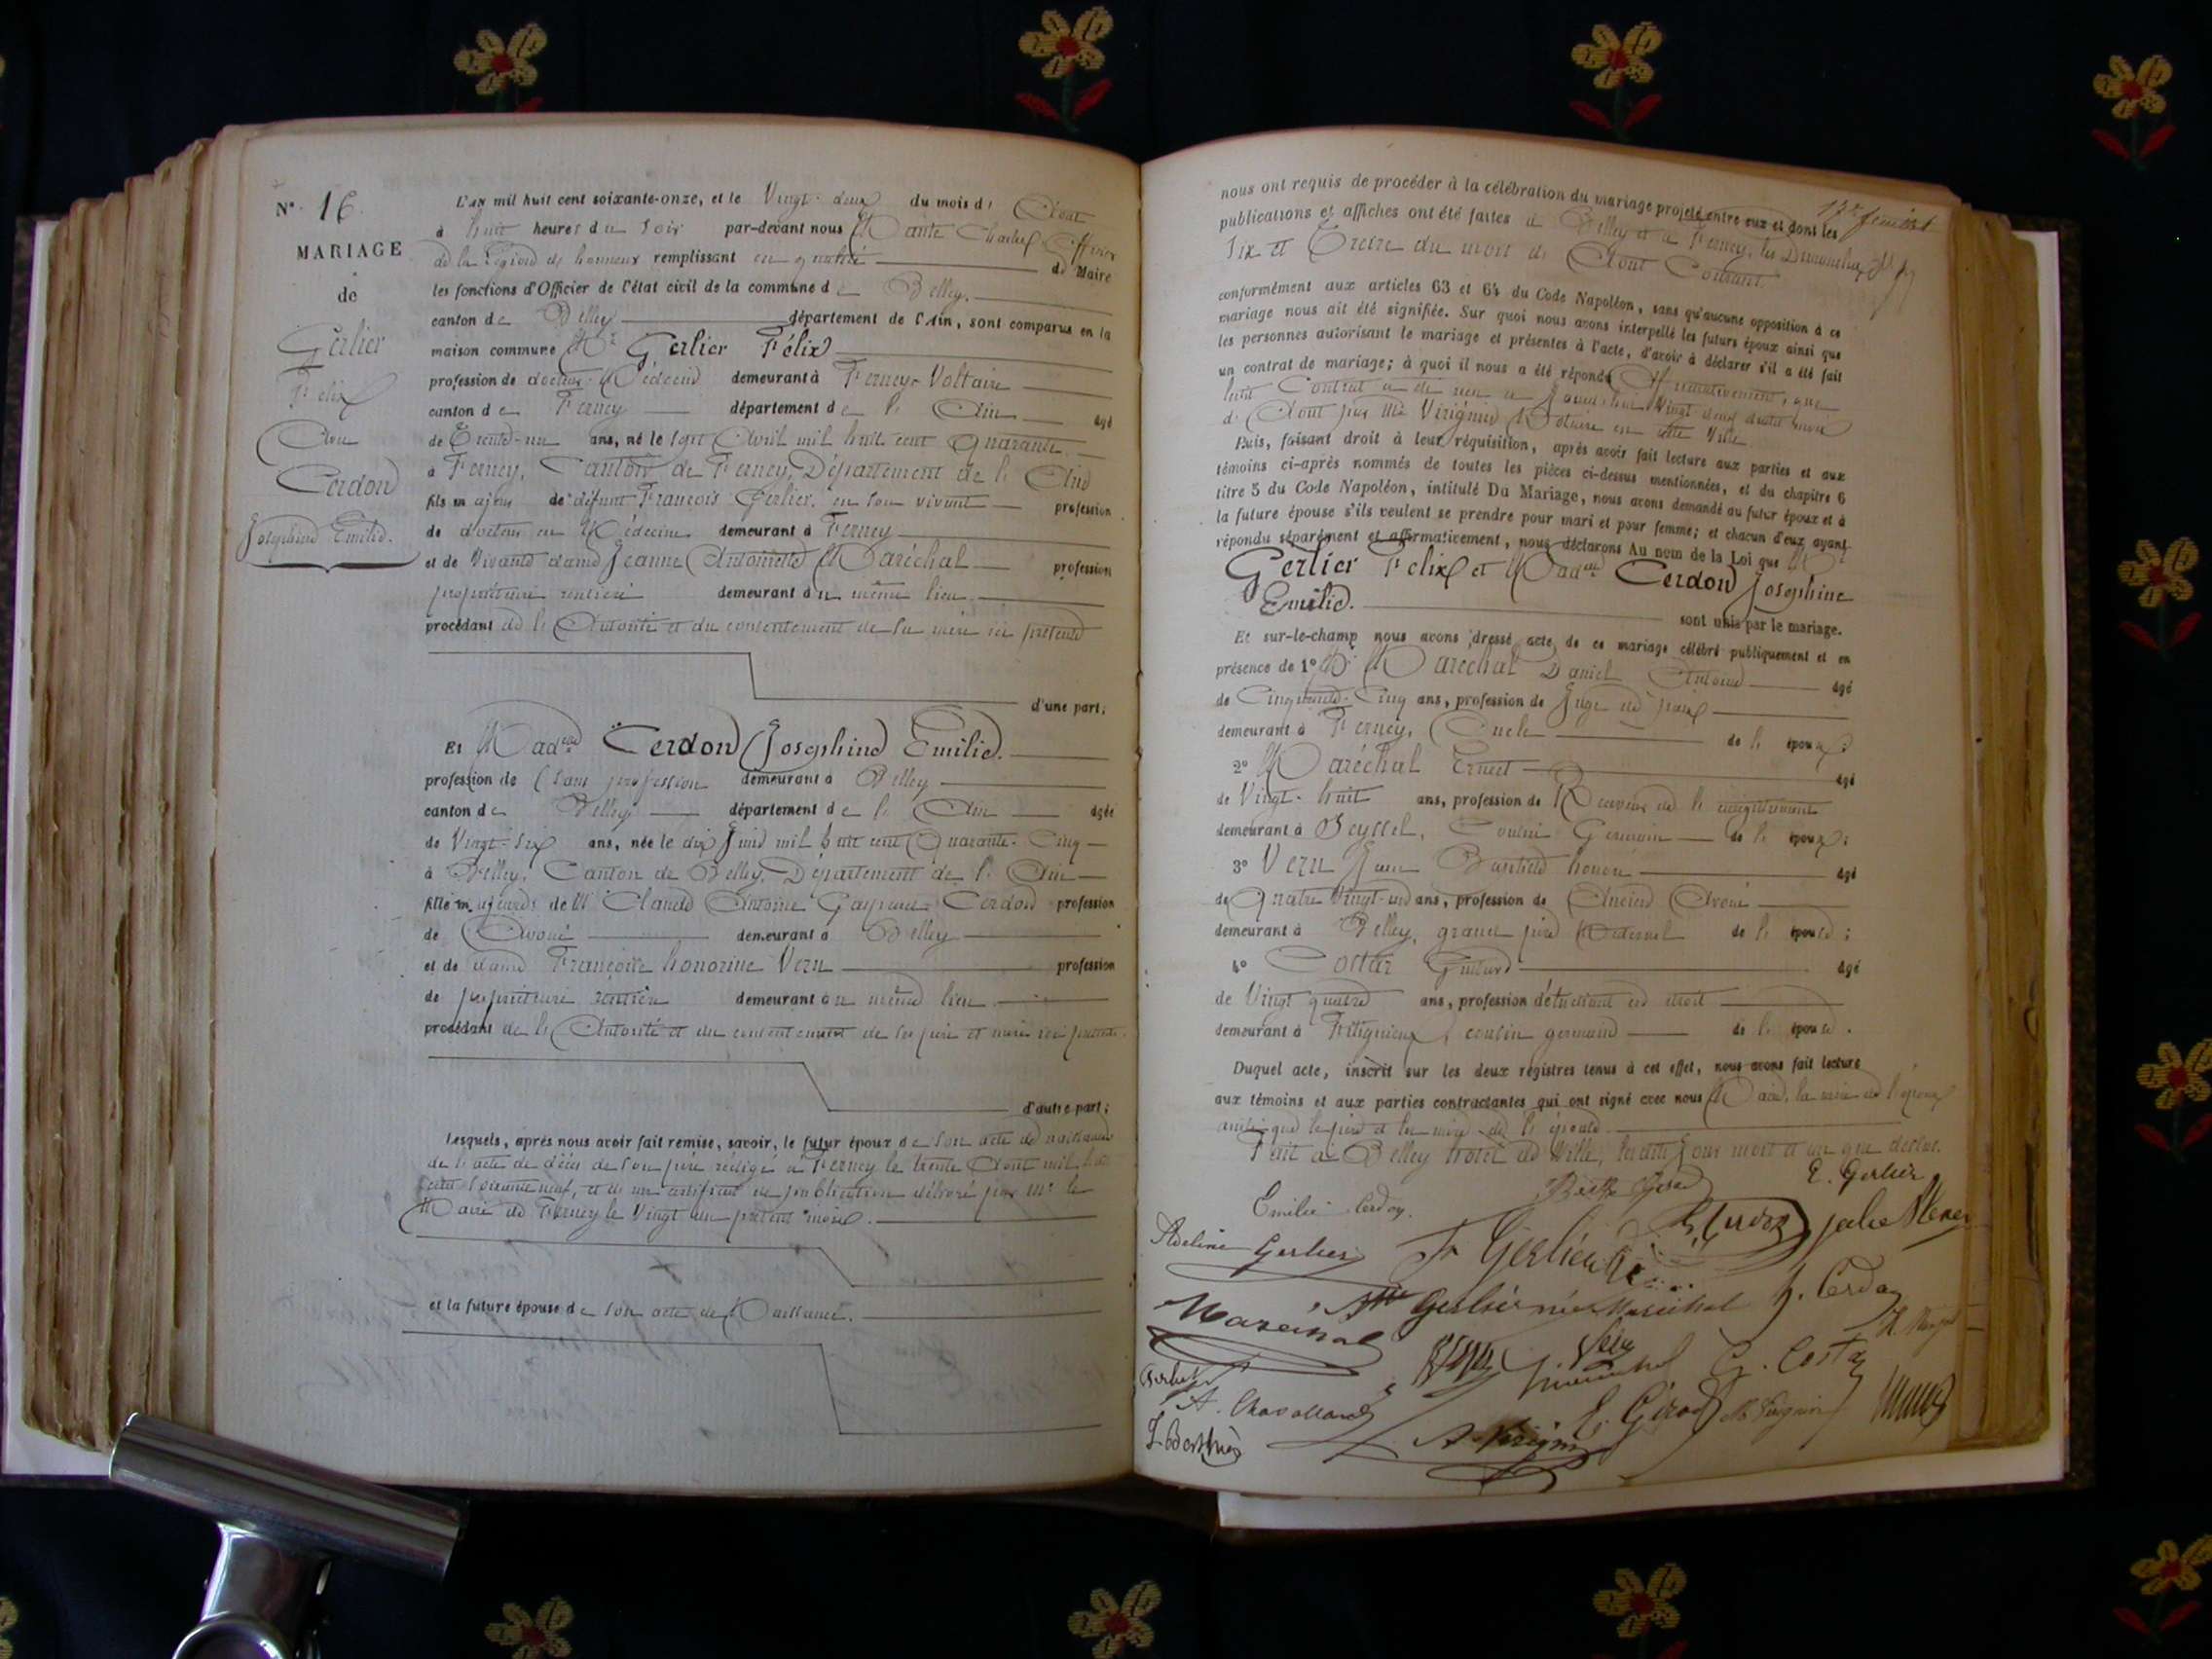 N° 16.
MARIAGE
de
Gerlier
Félix
Avec
Cerdon
Josephine Emilie.
L'an mil huit cent soixante-onze, et le Vingt-deux du mois d' Aout
à huit heures du soir par-devant nous Charles Officier
de la Légion d'honneur remplissant en qualité de Maire
les fonctions d'Officier de l'état civil de la commune de Belley.
canton de Belley département de l'Ain, sont comparus en la
maison commune Mr Gerlier Félix
profession de docteur-Médecin demeurant à Ferney-Voltaire
canton de Ferney département de l'Ain âgé
de Trente-un ans, né le sept Avril mil huit cent Quarante.
à Ferney, Canton de Ferney, Département de l'Ain
fils majeur de défunt François Gerlier, en son vivant profession
de docteur en Médecine demeurant à Ferney
et de Vivante dame Jeanne Antoinette Maréchal profession
propriétaire rentière demeurant au même lieu.
procédant de l'Autorité et du consentement de sa mère ici présente
d'une part;
Et Madelle Cerdon Josephine Emilie.
profession de sans profession demeurant à Belley
canton de Belley département de l'Ain âgée
de Vingt-six ans, née le dix Juin mil huit cent Quarante-Cinq
à Belley, Canton de Belley, Département de l'Ain
fille majeure de Mr Claude Antoine Cerdon profession
de Avoué demeurant à Belley
et de dame Françoise honorine Vern profession
de propriétaire rentière demeurant au même lieu.
procédant de l'Autorité et du consentement de ses père et mère ici présents.
d'autre part;
Lesquels, après nous avoir fait remise, savoir, le futur époux de son acte de naissance
de l'acte de décès de son père rédigé à Ferney le trente Aout mil huit
cent soixante neuf, et de un certificat de publication délivré par Mr le
Maire de Ferney le Vingt un présent mois.
et la future épouse de son acte de Naissance.
17e feuillet
nous ont requis de procéder à la célébration du mariage projeté entre eux et dont les
publications et affiches ont été faites à Belley et à Ferney, les Dimanches
Six et Treize du mois de Aout Courant
conformément aux articles 63 et 64 du Code Napoléon, sans qu'aucune opposition à ce
mariage nous ait été signifiée. Sur quoi nous avons interpellé les futurs époux ainsi que
les personnes autorisant le mariage et présentes à l'acte, d'avoir à déclarer s'il a été fait
un contrat de mariage; à quoi il nous a été répondu Affirmativement, que
ledit Contrat a été reçu Vingt deux
d'Aout par Me Virignin Notaire en cette Ville
Puis, faisant droit à leur réquisition, après avoir fait lecture aux parties et aux
témoins ci-après nommés de toutes les pièces ci-dessus mentionnées, et du chapitre 6
titre 5 du Code Napoléon, intitulé Du Mariage, nous avons demandé au futur époux et à
la future épouse s'ils veulent se prendre pour mari et pour femme; et chacun d'eux ayant
répondu séparément et affirmativement, nous déclarons Au nom de la Loi que Mr
Gerlier Felix et Madelle Cerdon Josephine
Emilie. sont unis par le mariage.
Et sur-le-champ nous avons dressé acte de ce mariage célébré publiquement et en
présence de 1° Mr Marechal Daniel Antoine âgé
de Cinquante-Cinq ans, profession de Juge de paix
demeurant à Ferney, Oncle de l'époux;
2° Maréchal Ernest âgé
de Vingt-huit ans, profession de Receveur de l'enregistrement
demeurant à Seyssel, Cousin Germain de l'époux;
3° Vern Jean Baptiste honoré âgé
de Quatre Vingt-un ans, profession de Ancien Avoué
demeurant à Belley, grand père Maternel de l'épouse;
4° Costaz âgé
de Vingt quatre ans, profession d'étudiant en droit
demeurant à cousin germain de l'épouse.
Duquel acte, inscrit sur les deux registres tenus à cet effet, nous avons fait lecture
aux témoins et aux parties contractantes qui ont signé avec nous Maire, la mère de l'époux
ainsi que le père et la mère de l'épouse.
Fait à Belley hotel de Ville, lesdits Jour mois et an que dessus.
Emilie Cerdon.
E. Gerlier
Adeline Gerlier
Fx Gerlier
Cerdon
Julie
Maréchal
Gerlier née Maréchal
H. Cerdon
Vern
Costaz
A. Chavolland
Girod
A. Virignin